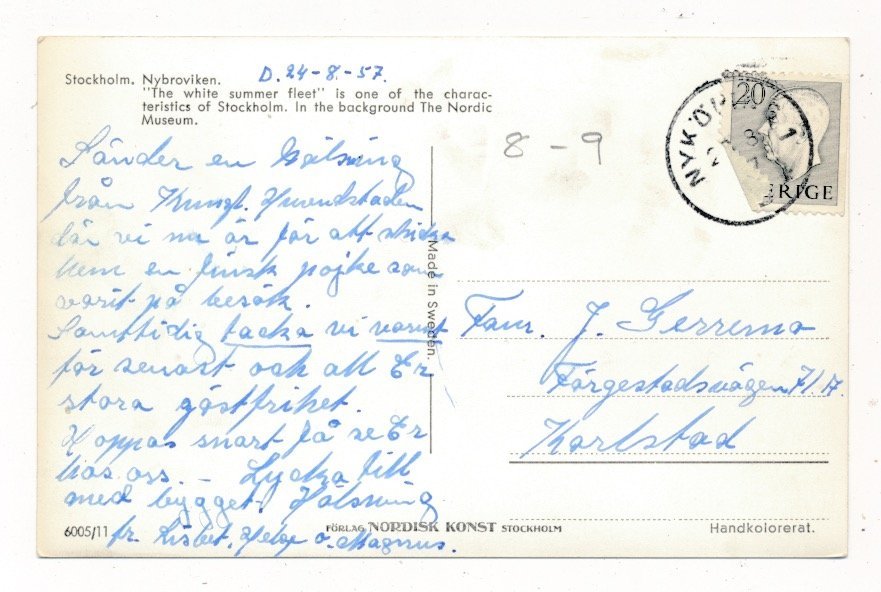 Stockholm. Nybroviken.
D. 24-8-57.
"The white summer fleet" is one of the charac-
teristics of Stockholm. In the background The Nordic
Museum.
8-9
NYKÖPING 1
20
SVERIGE
Sänder en Hälsning
från Kungl. Huvudstaden
där vi nu är för att skicka
hem en finsk pojke som
varit på besök.
Samttidig tacka vi varmt
för senast och all Er
stora gästfrihet.
Hoppas snart få se Er
hos oss. - Lycka till
med bygget. Hälsning
fr. Lisbet, Helge o. Magnus.
Made in Sweden.
Fam. J. Gerremo
Färgestadsvägen 71 A.
Karlstad
6005/11
FÖRLAG NORDISK KONST STOCKHOLM
Handkolorerat.